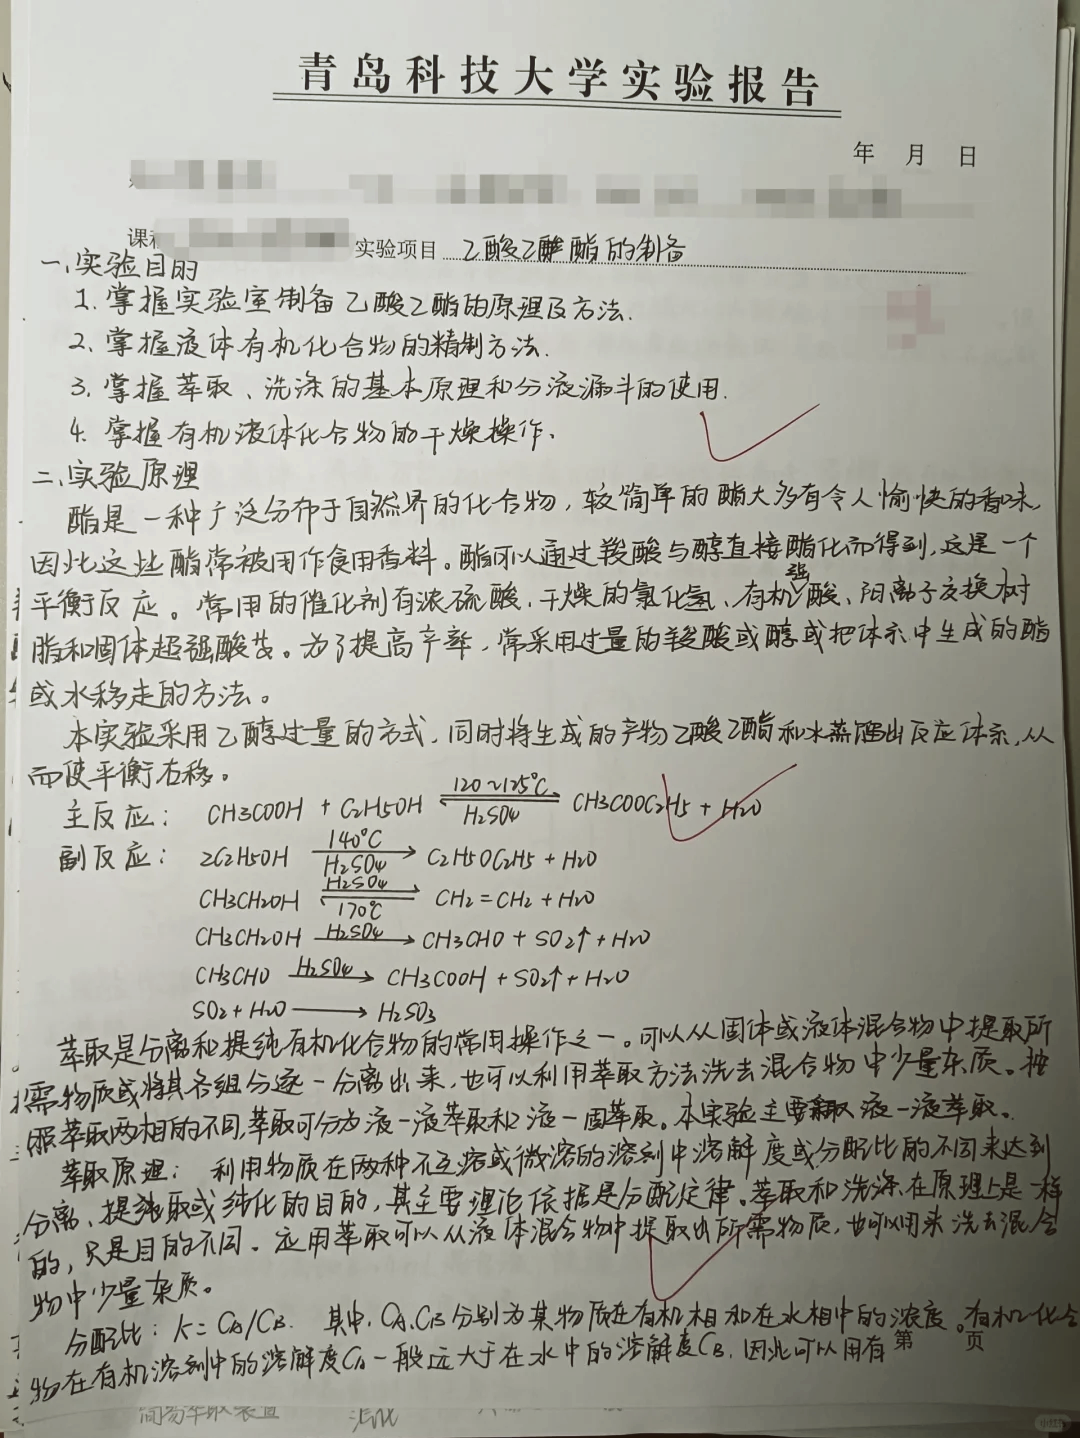 青岛科技大学实验报告
年 月 日
课程
实验项目 乙酸乙酯的制备
一、实验目的
1. 掌握实验室制备乙酸乙酯的原理及方法.
2、掌握液体有机化合物的精制方法.
3. 掌握萃取、洗涤的基本原理和分液漏斗的使用.
4. 掌握有机液体化合物的干燥操作、
二、实验原理
酯是一种广泛分布于自然界的化合物，较简单的酯大多有令人愉快的香味，
因此这些酯常被用作食用香料。酯可以通过羧酸与醇直接酯化而得到，这是一个
平衡反应。常用的催化剂有浓硫酸、干燥的氯化氢、有机强酸、阳离子交换树
脂和固体超强酸等。为了提高产率，常采用过量的羧酸或醇或把体系中生成的酯
或水移走的方法。
本实验采用乙醇过量的方式，同时将生成的产物乙酸乙酯和水蒸馏出反应体系，从
而使平衡右移。
主反应： CH3COOH + C2H5OH 120~125℃ H2SO4 CH3COOC2H5 + H2O
副反应： 2C2H5OH 140℃ H2SO4 → C2H5OC2H5 + H2O
CH3CH2OH H2SO4 170℃ CH2=CH2 + H2O
CH3CH2OH H2SO4 → CH3CHO + SO2↑ + H2O
CH3CHO H2SO4 → CH3COOH + SO2↑ + H2O
SO2 + H2O → H2SO3
萃取是分离和提纯有机化合物的常用操作之一。可以从固体或液体混合物中提取所
需物质或将其各组分逐一分离出来，也可以利用萃取方法洗去混合物中少量杂质。按
照萃取两相的不同，萃取可分为液一液萃取和液一固萃取。本实验主要 液一液萃取。
萃取原理： 利用物质在两种不互溶或微溶的溶剂中溶解度或分配比的不同来达到
分离、提取或纯化的目的，其主要理论依据是分配定律。萃取和洗涤在原理上是一样
的，只是目的不同。应用萃取可以从液体混合物中提取出所需物质，也可以用来洗去混合
物中少量杂质。
分配比：K=CA/CB. 其中，CA、CB分别为某物质在有机相和在水相中的浓度。有机化合
物在有机溶剂中的溶解度CA一般远大于在水中的溶解度CB，因此可以用有
第 页
简易萃取装置
小红书